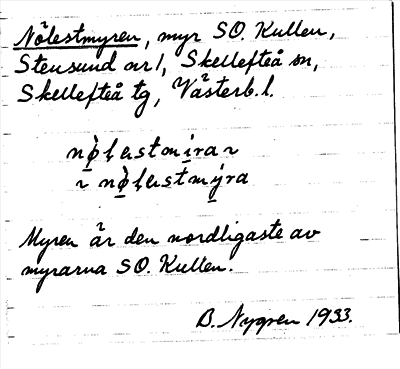 Nölestmyren, myr SO. Kullen,
Stensund nr 1, Skellefteå sn,
Skellefteå tg, Västerb. l.
Myren är den nordligaste av
myrarna SO. Kullen.
B. Nygren 1933.